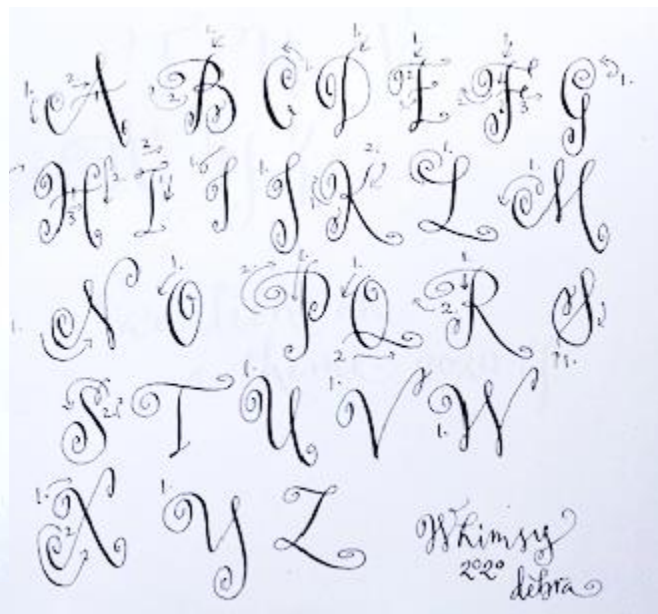 A B C D E F G
H I I J K L M
N O P Q R S
S T U V W
X Y Z
Whimsy
2020
debra